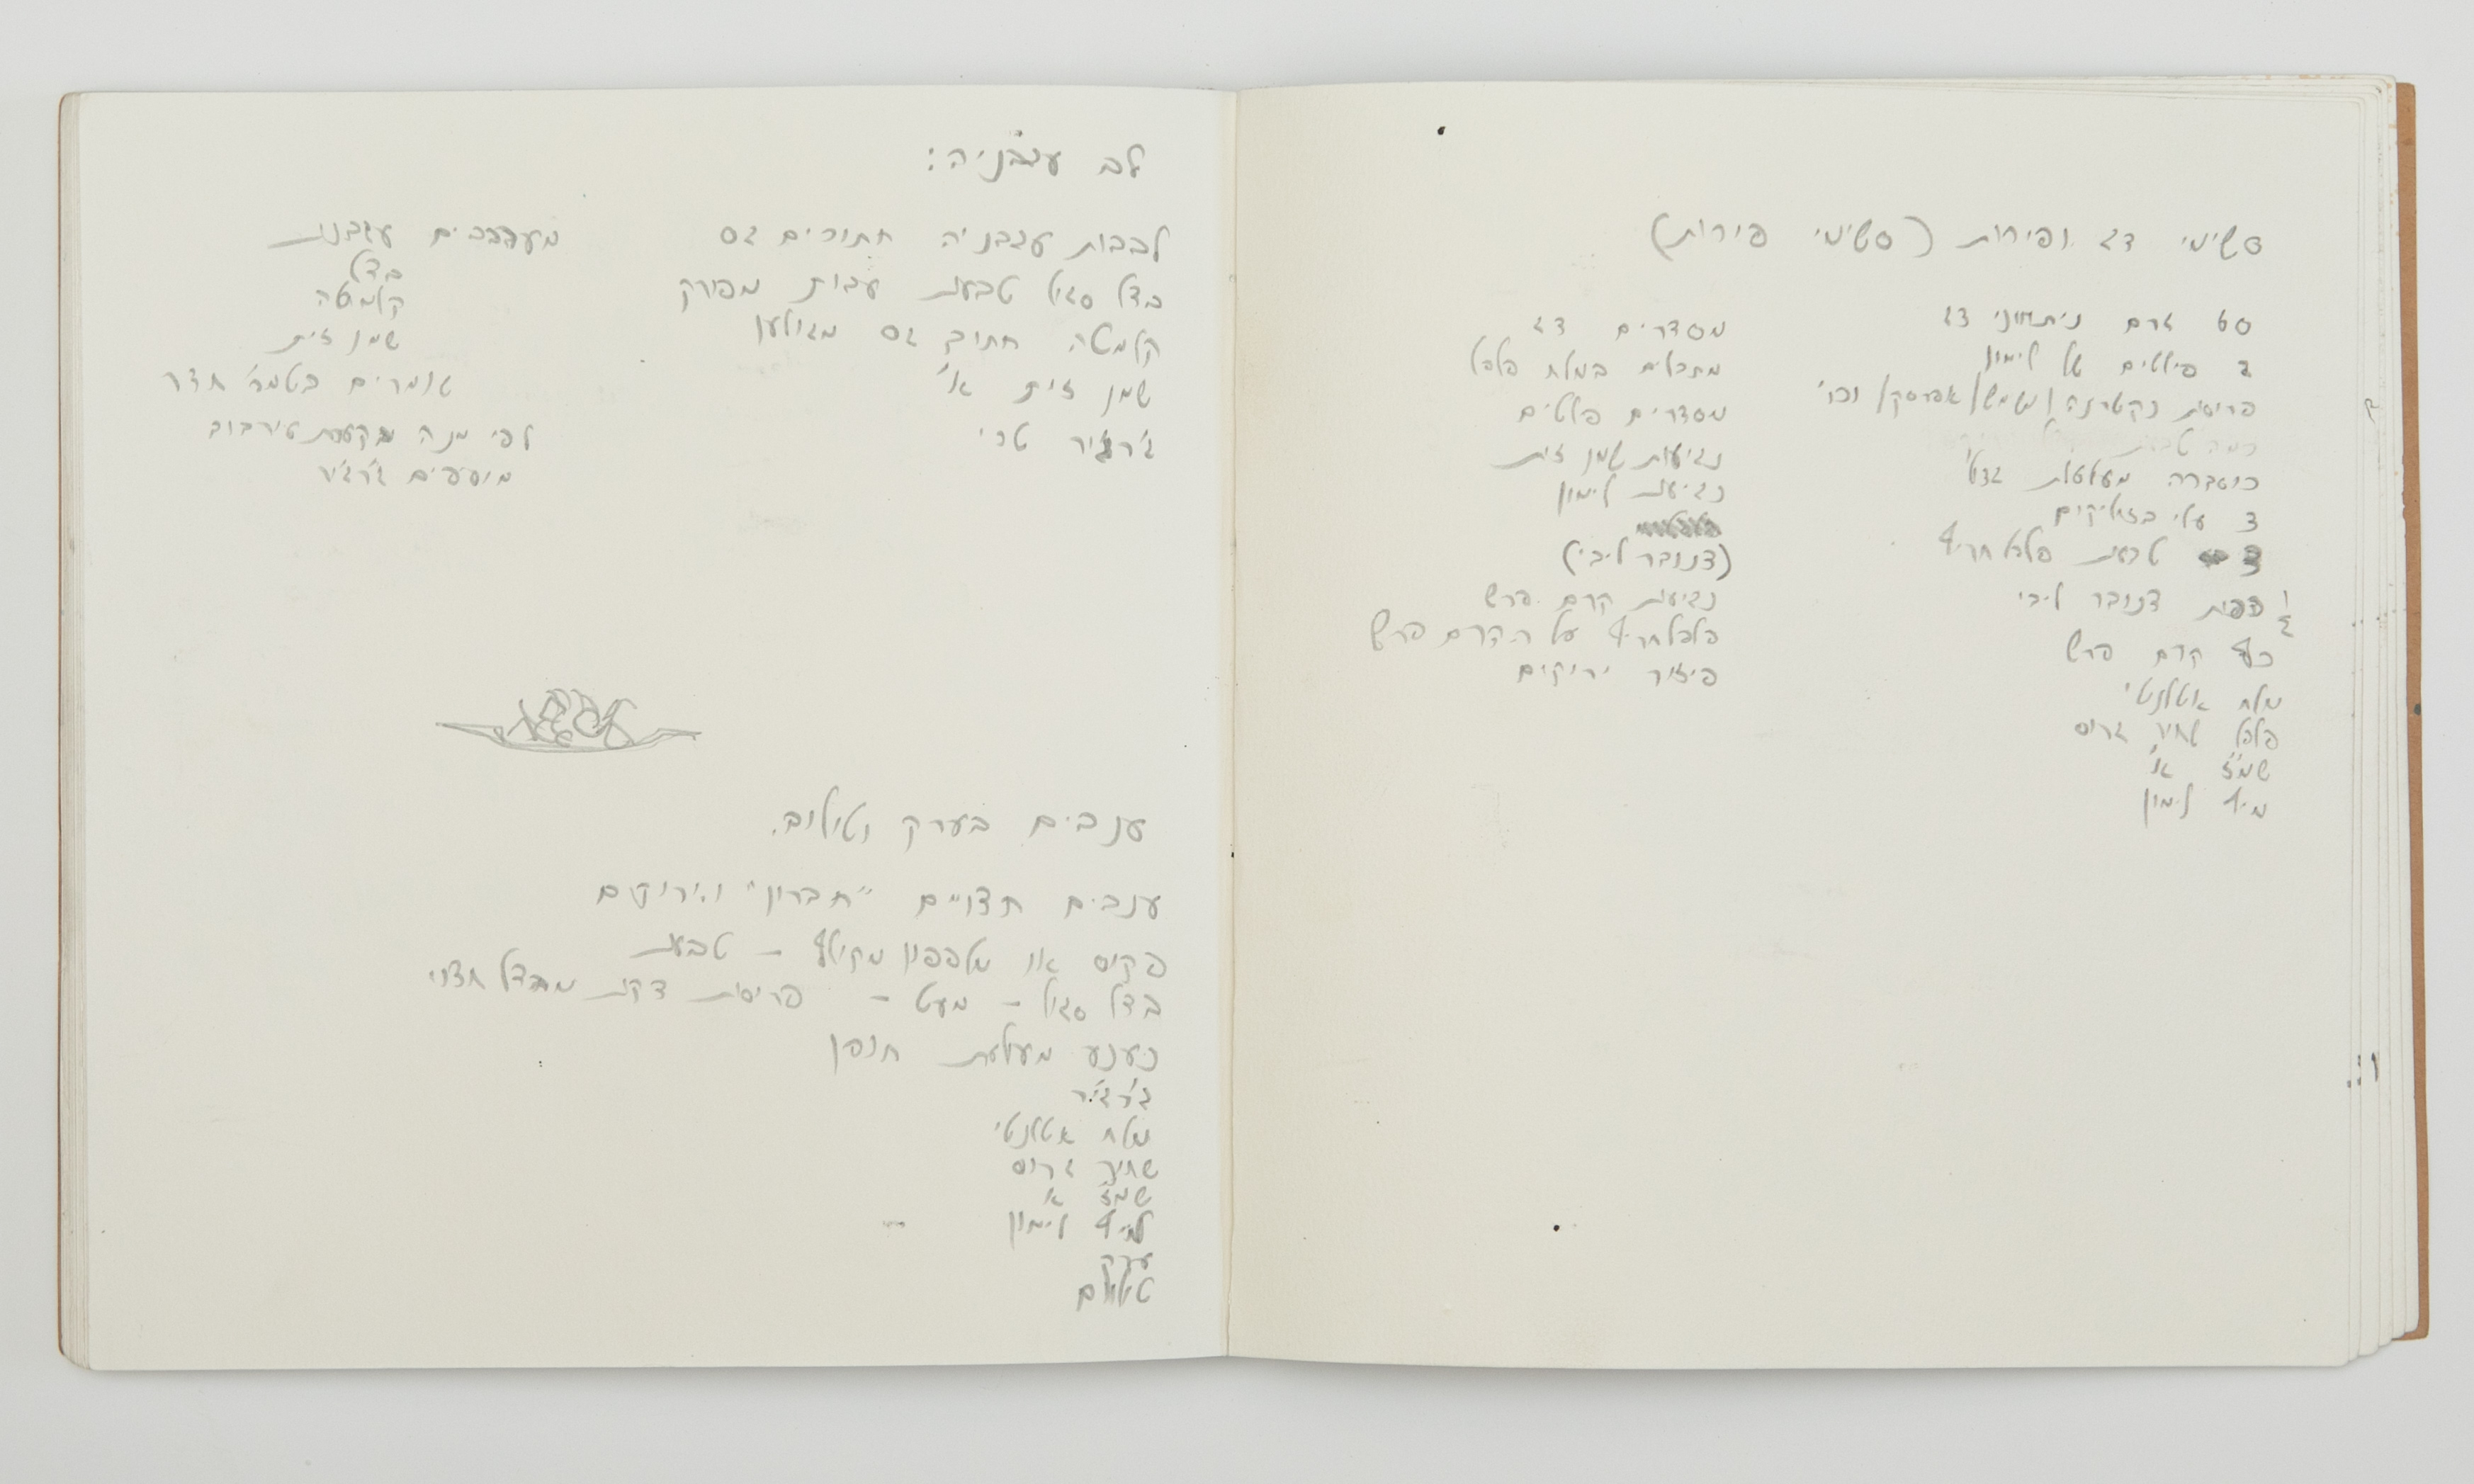 סשימי דג ופירות (סשימי פירות)
60 גרם ניתחוני דג
2 פילטים של לימון
פריסות נקטרינה/משמש/אפרסק/וכו'
כוסברה מעלעלת גדול
3 עלי בזיליקום
3 טבעות פלפל חריף
½ כפית צנובר ליבי
כף קרם פרש
מלח אטלנטי
פלפל שחור גרוס
שמ"ז א'
מיץ לימון
מסדרים דג
מתבלים במלח פלפל
מסדרים פלטים
נגיעות שמן זית
נגיעות לימון
(צנובר ליבי)
נגיעות קרם פרש
פלפל חריף על הקרם פרש
פיזור ירוקים
לב עגבניה:
לבבות עגבניה חתוכים גס
בצל סגול טבעות עבות מפורק
קלמטה חתוך גס מגולען
שמן זית א'
ג'רג'יר טרי
מערבבים עגבניות
בצל
קלמטה
שמן זית
שומרים בטמפ' חדר
לפי מנה בקערת עירבוב
מוסיפים ג'רג'יר
ענבים בערק ושילוב.
ענבים חצויים "חברון" וירוקים
פקוס או מלפפון מקולף - טבעות
בצל סגול - מעט - פריסות דקות מבצל חצוי
נענע מעלעלת חופן
ג'רג'יר
מלח אטלנטי
שחור גרוס
שמ"ז א
מיץ לימון
ערק